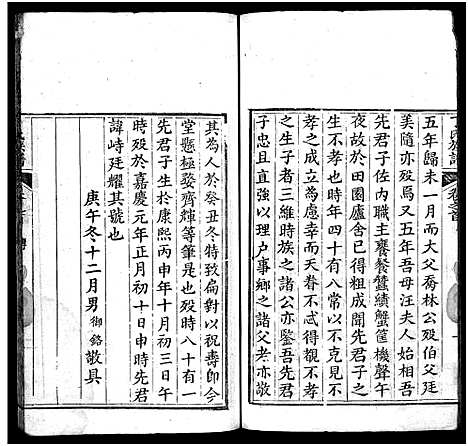 五年歸未一月而大父喬林公殁伯父廷
美隨亦殁焉又五年吾母汪夫人始娟吾
先君子佐內職主饔餐蠶績蟹筐機聲午
夜故於田園廬舍已得粗成聞先君子之
不幸也時年四十有八常以不克見不
孝之成立為慮幸而天眷吾得覩不孝
之生子者三維時族之諸公亦鑒吾先君
子忠且直以理户事鄉之諸父老亦敬
其為於癸丑冬特致扁對以祝壽即今
堂懸極婺齊輝等筆是也殁時八十有一
先君子生於康熙丙申年十月初三日午
時殁於嘉慶元年正月初十日申時先君
諱峙廷耀其號也
庚午冬十二月男御銘敬具